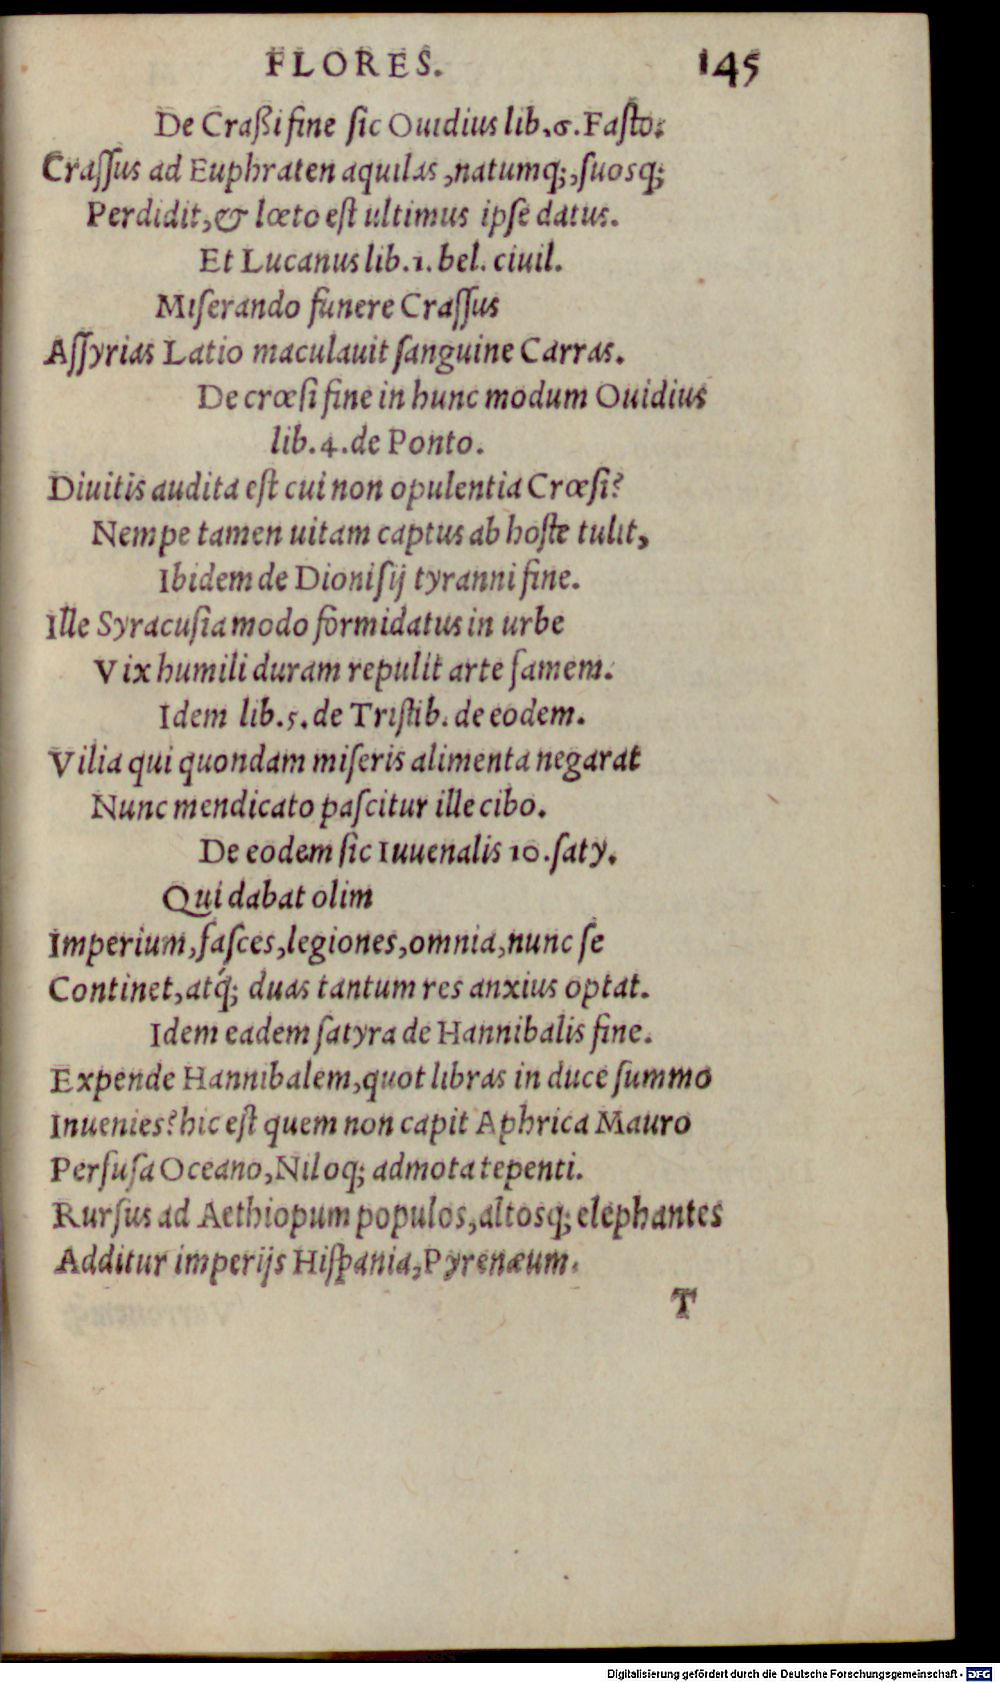 FLORES. 145
De Craßi fine ſic Ouidius lib.6.Faſto:
Craſſus ad Euphraten aquilas,natumq;,ſuosq;
Perdidit,& lœto eſt ultimus ipſe datus.
Et Lucanus lib.1.bel. ciuil.
Miſerando funere Craſſus
Aſſyrias Latio maculauit ſanguine Carras.
De crœſi fine in hunc modum Ouidius
lib.4.de Ponto.
Diuitis audita eſt cui non opulentia Crœſi?
Nempe tamen uitam captus ab hoſte tulit,
Ibidem de Dioniſij tyranni fine.
Ille Syracuſia modo formidatus in urbe
Vix humili duram repulit arte famem.
Idem lib.5.de Triſtib. de eodem.
Vilia qui quondam miſeris alimenta negarat
Nunc mendicato paſcitur ille cibo.
De eodem ſic Iuuenalis 10.ſaty.
Qui dabat olim
Imperium,faſces,legiones,omnia,nunc ſe
Continet,atq́; duas tantum res anxius optat.
Idem eadem ſatyra de Hannibalis fine.
Expende Hannibalem,quot libras in duce ſummo
Inuenies?hic eſt quem non capit Aphrica Mauro
Perfuſa Oceano,Niloq; admota tepenti.
Rurſus ad Aethiopum populos,altosq; elephantes
Additur imperijs Hiſpania,Pyrenæum.
T
Digitalisierung gefördert durch die Deutsche Forschungsgemeinschaft - DFG